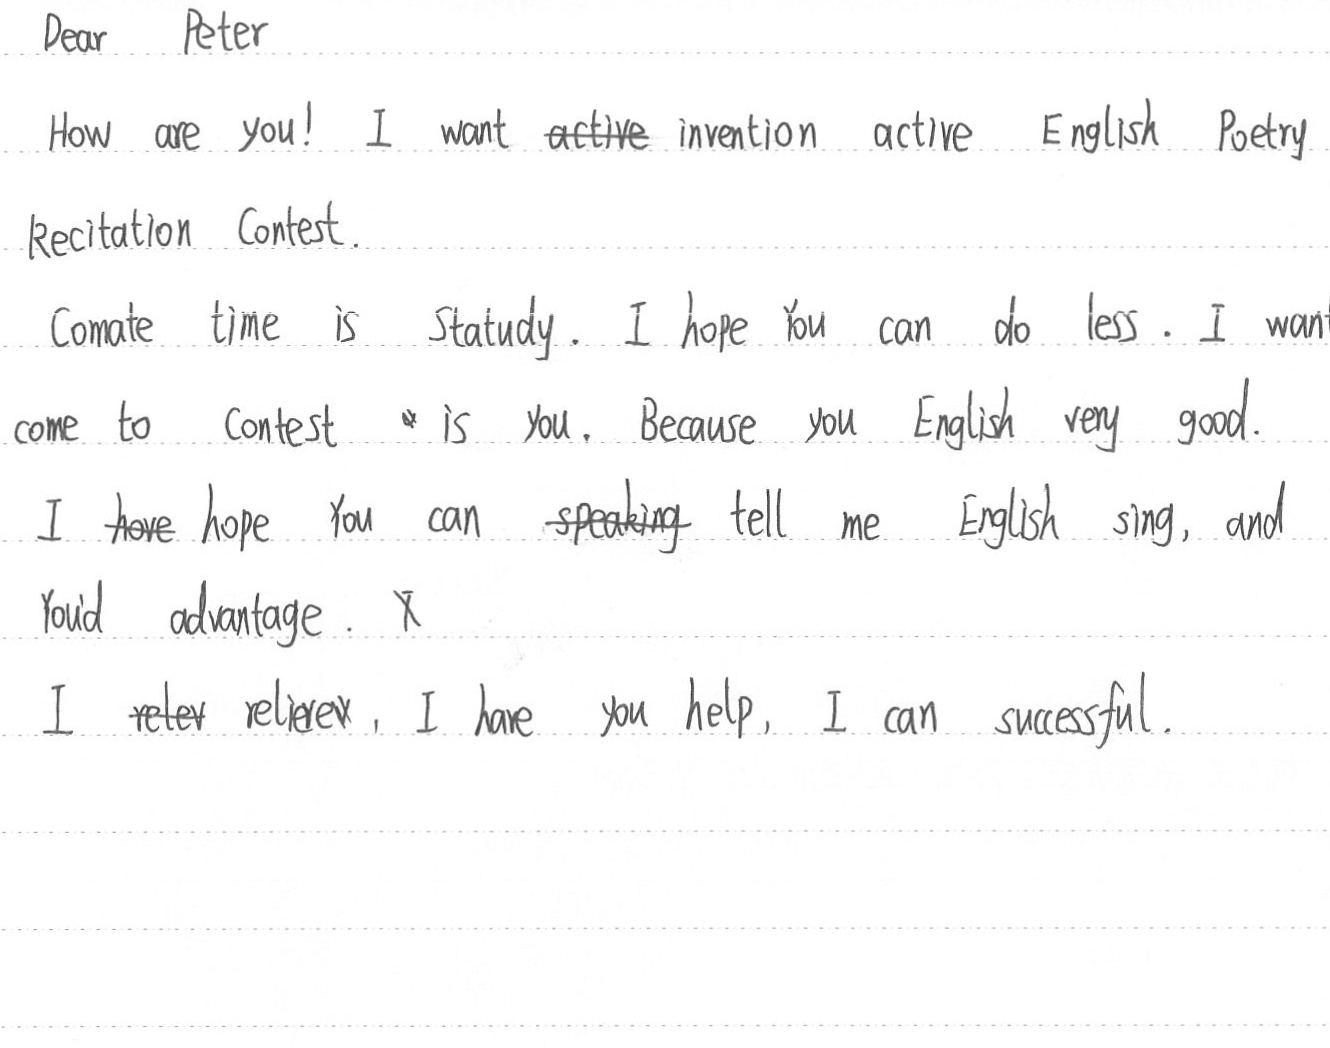 Dear Peter
How are you! I want active invention active English Poetry
Recitation Contest.
Comate time is Statudy. I hope You can do less. I want
come to Contest is you. Because you English very good.
I hove hope You can speaking tell me English sing, and
You'd advantage.
I reter relierex, I have you help, I can successful.